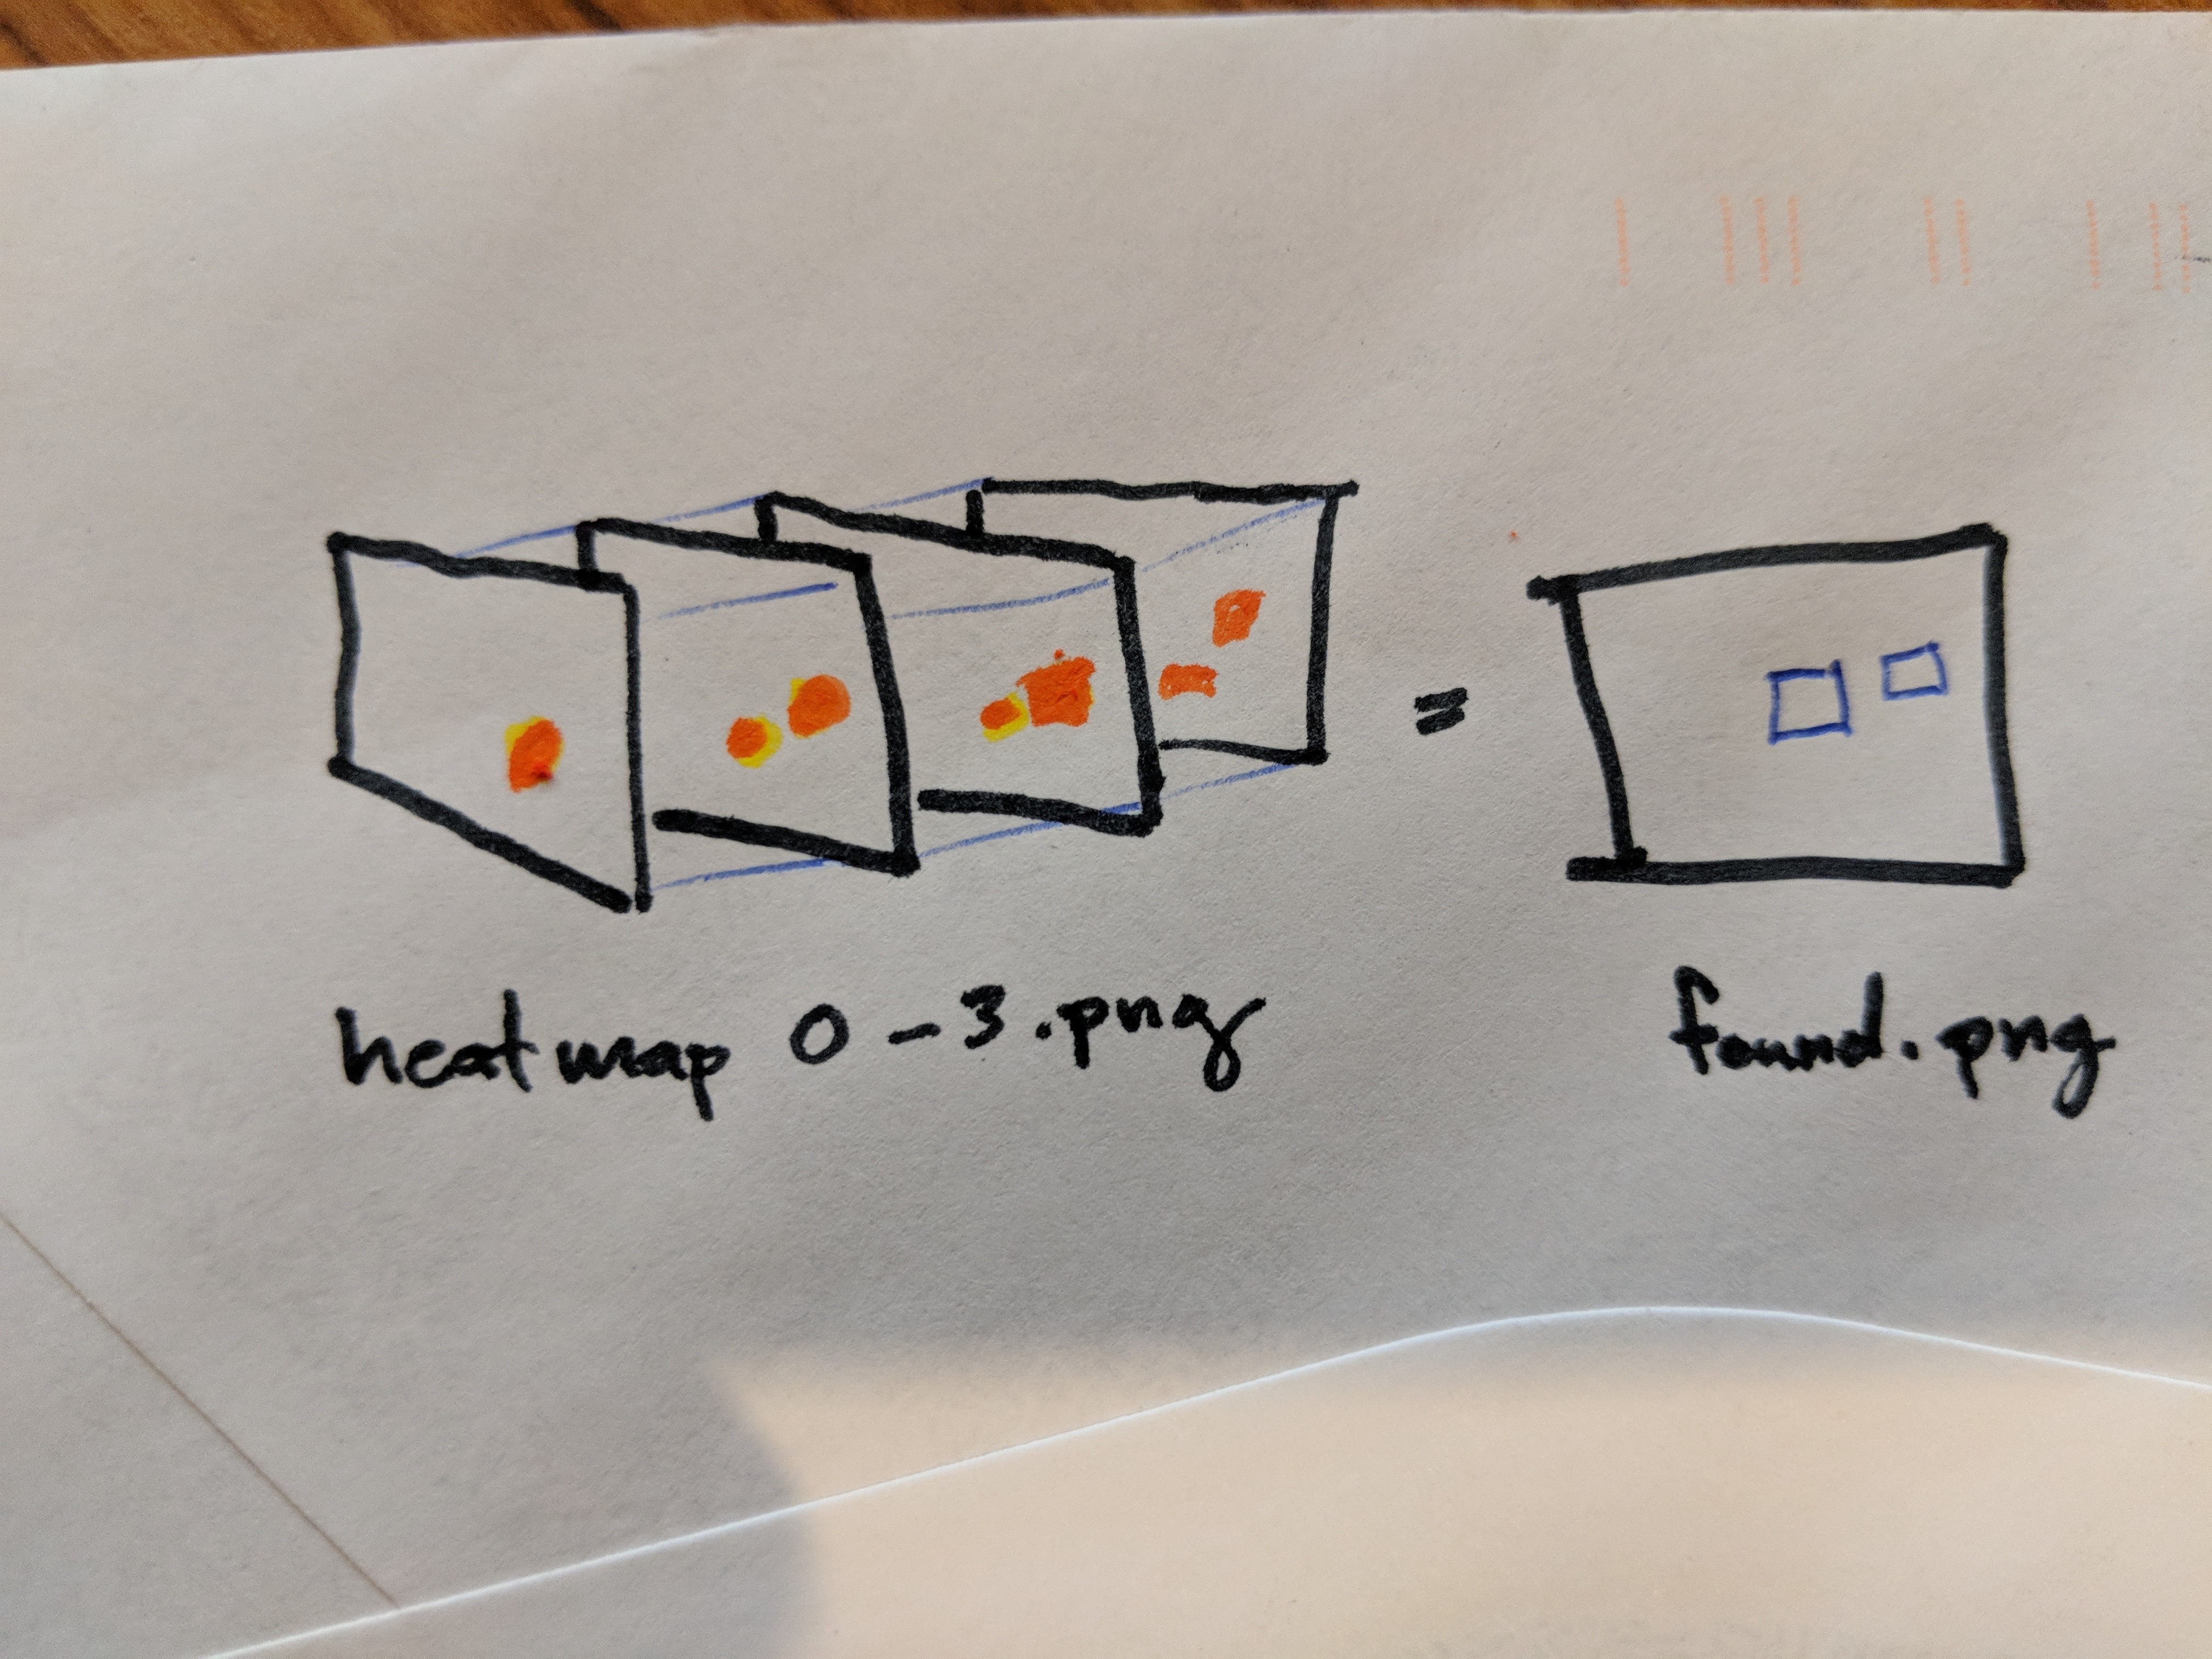 =
heatmap 0-3.png
found.png